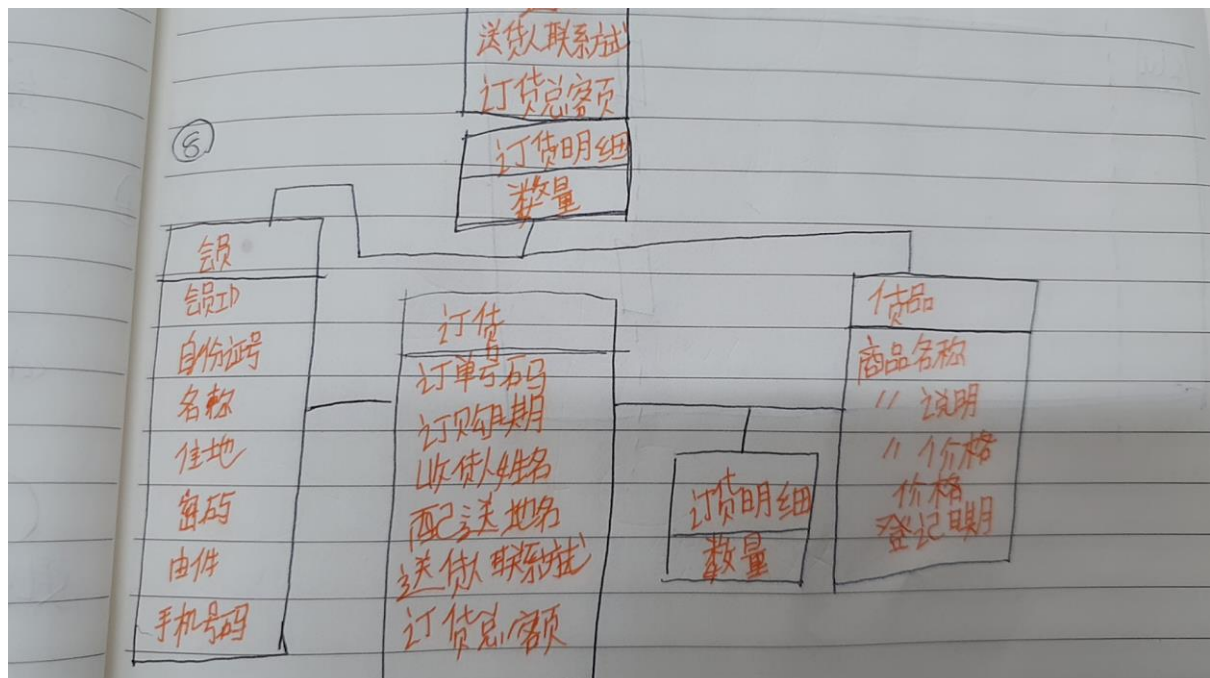 送货人联系方式
订货总额
⑧
订货明细
数量
会员
会员ID
自份证号
名称
住地
密码
由件
手机号码
订货
订单号码
订购日期
收货人姓名
配送地名
送货人联系方式
订货总额
订货明细
数量
货品
商品名称
〃 说明
〃 价格
价格
登记日期